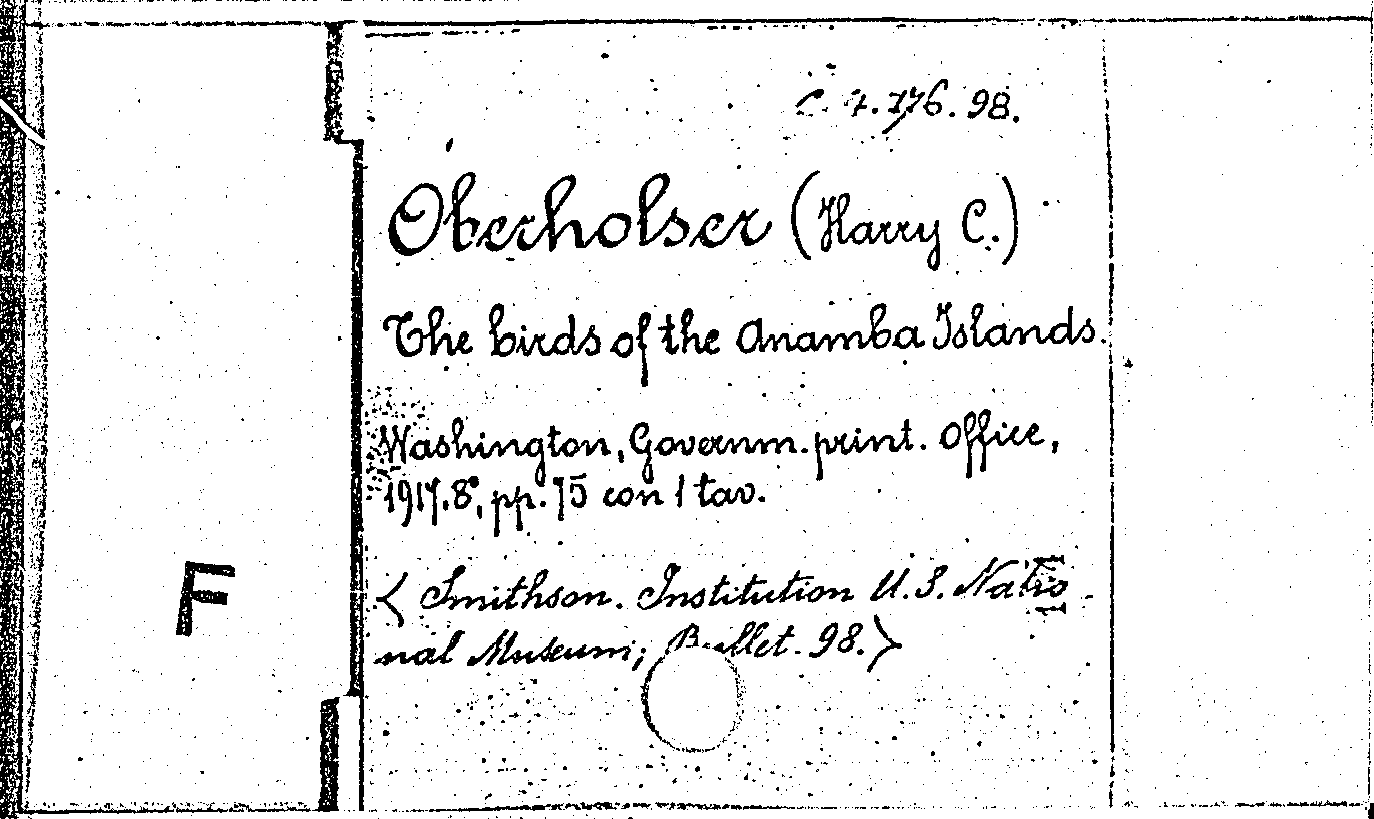 C. 4.176.98.
Oberholser (Harry C.)
The birds of the Anamba Islands.
Washington, Governm. print. Office,
1917. 8°, pp. 75 con 1 tav.
F
< Smithson. Institution U. S. Natio-
nal Museum; Bullet. 98.>